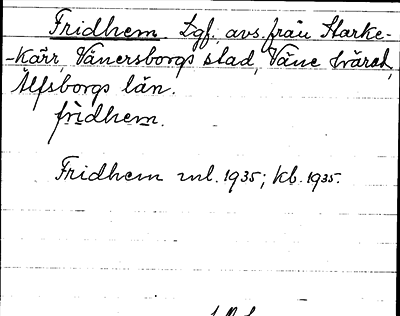 Fridhem. Lgf. avs. från Starke-
-Kärr, Vänersborgs stad, Väne härad,
Älfsborgs län.
fridhem.
Fridhem ml. 1935; kb. 1935.